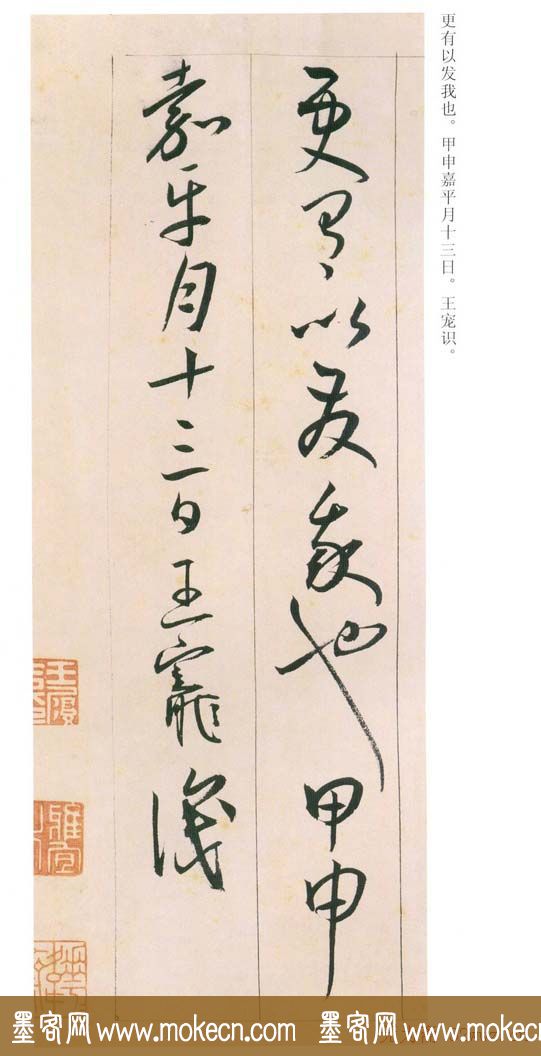 更有以发我也。甲申嘉平月十三日。王宠识。
更有以發我也甲申
嘉平月十三日王寵識
墨客网 www.mokecn.com 墨客网 www.mokecn.com